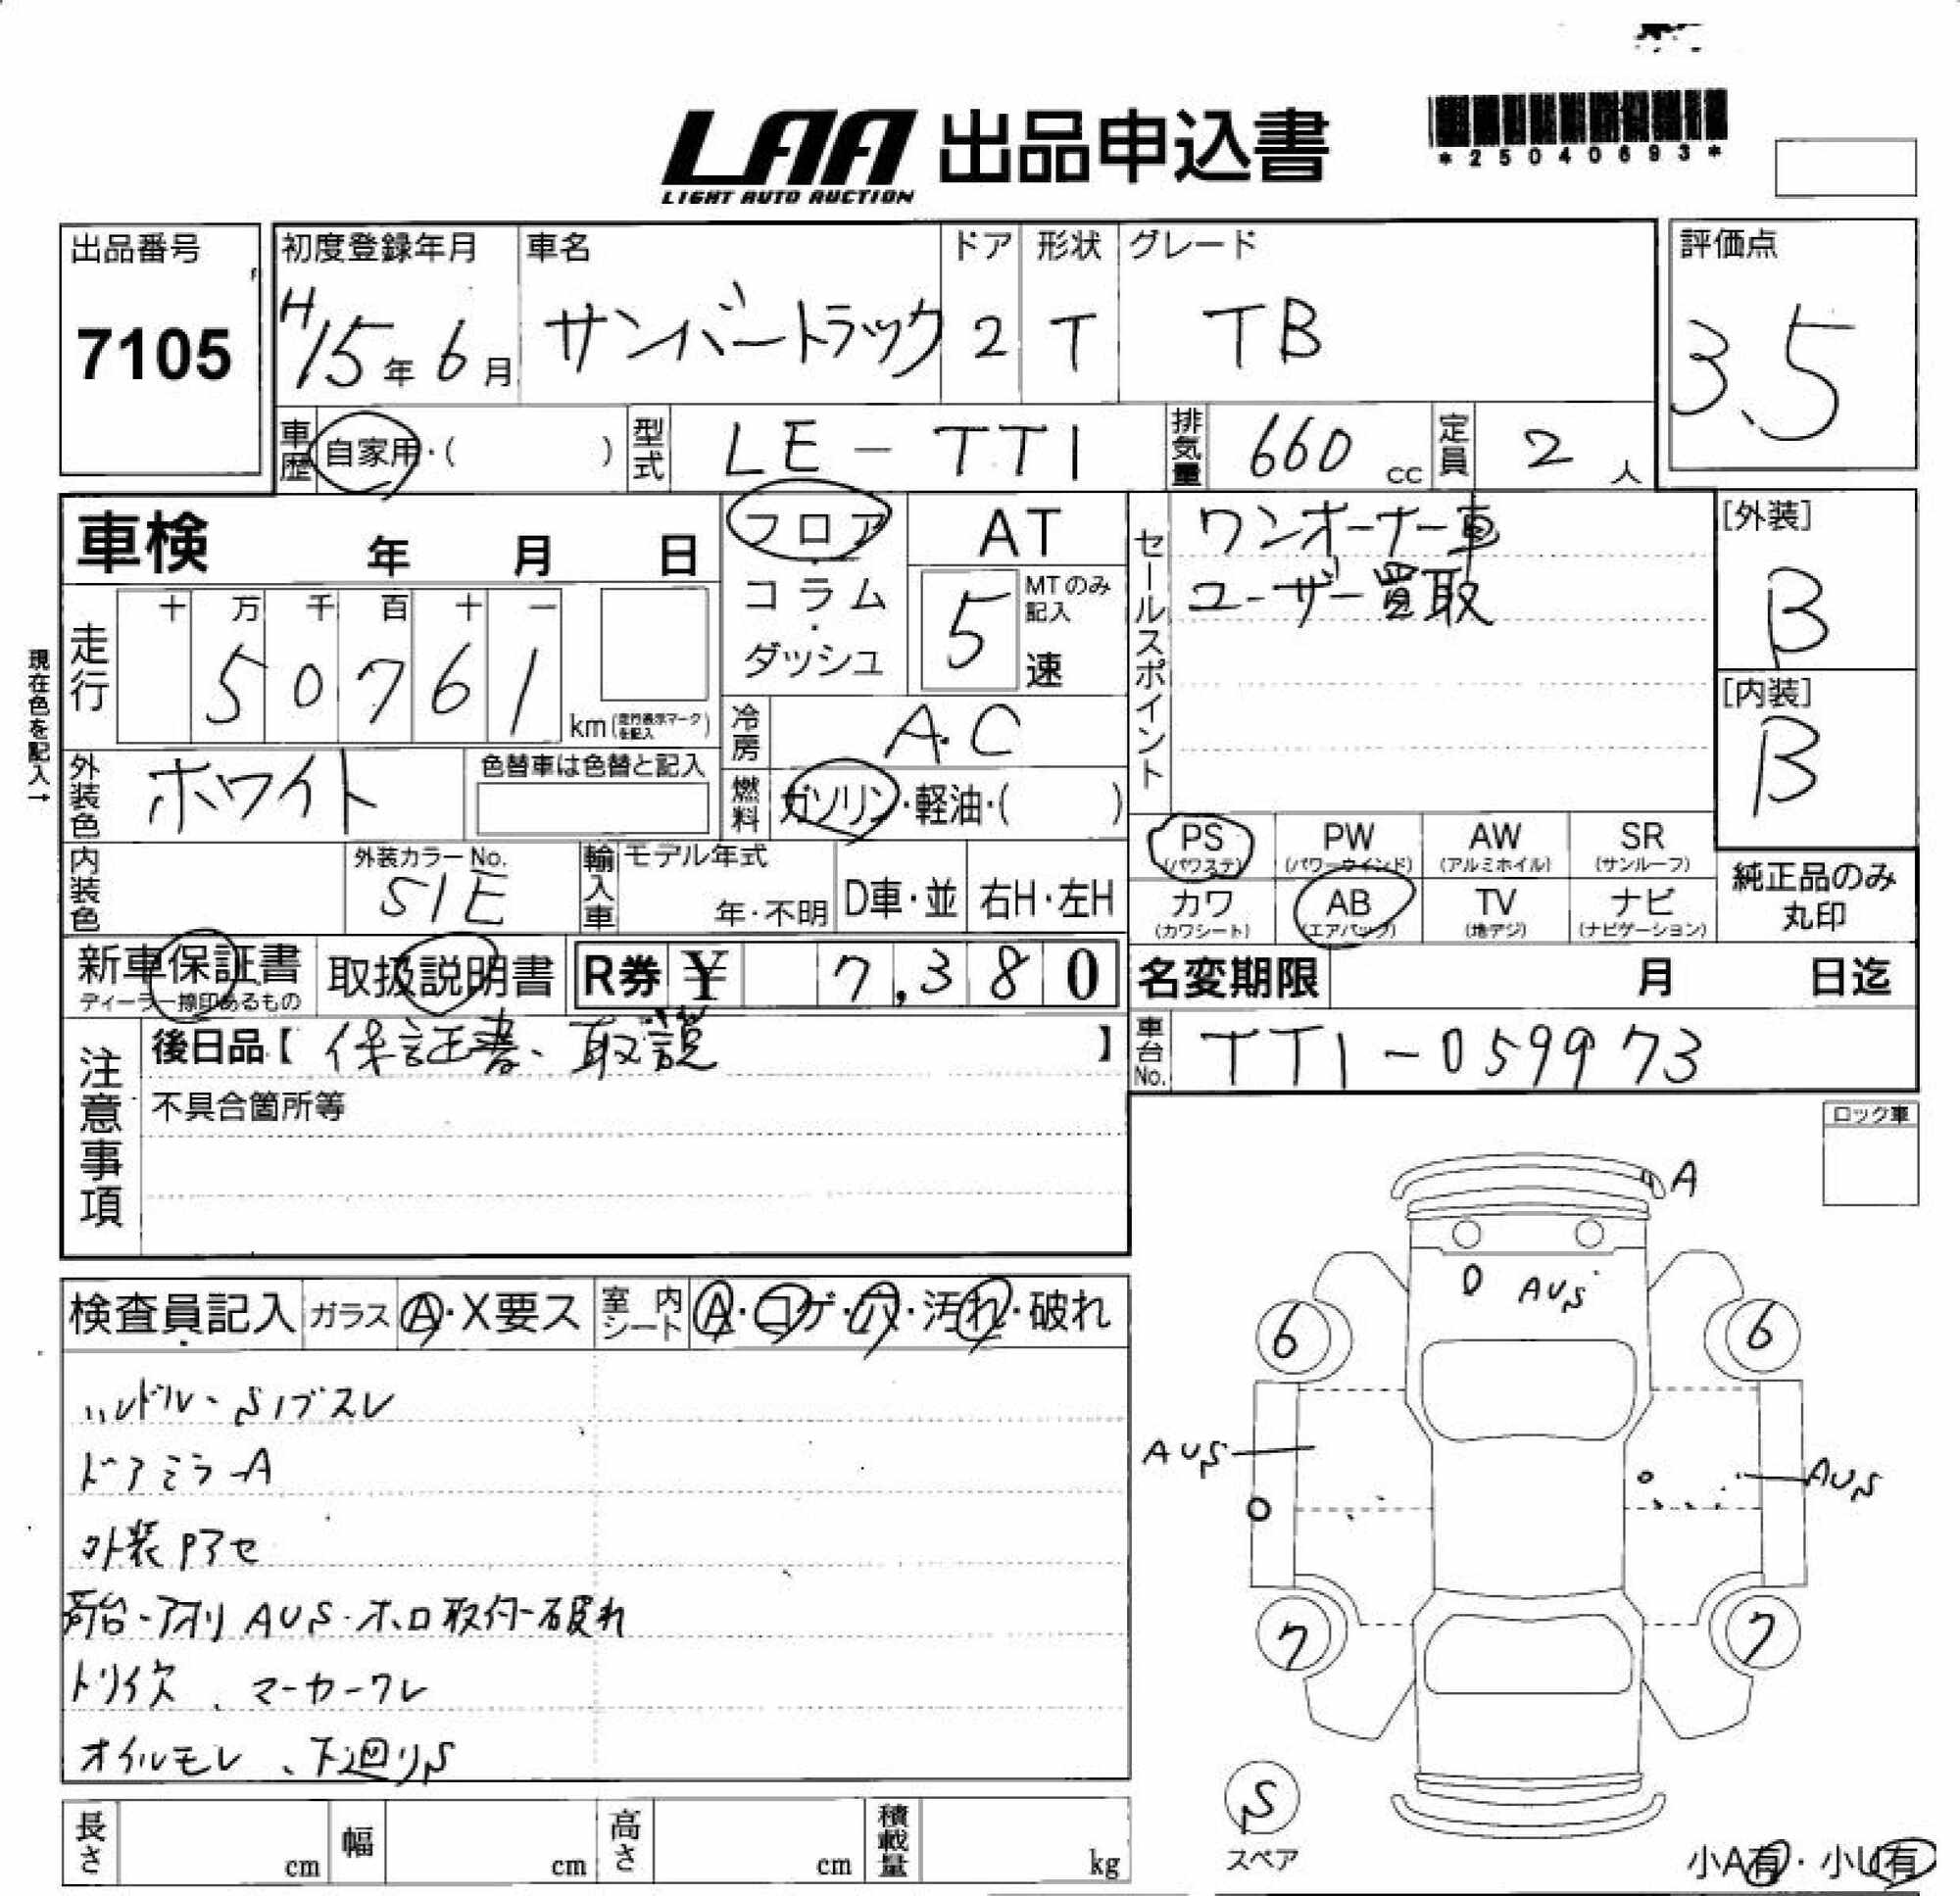 LAA 出品申込書
LIGHT AUTO AUCTION
*25040693*
出品番号
7105
初度登録年月
H15年6月
車名
サンバートラック
ドア
2
形状
T
グレード
TB
評価点
3.5
車歴 自家用・( )
型式 LE-TT1
排気量 660 cc
定員 2 人
車検 年 月 日
フロア・コラム・ダッシュ
AT
5 速
MTのみ記入
セールスポイント
ワンオーナー車
ユーザー買取
[外装]
B
[内装]
B
現在色を記入→
走行
十 万 千 百 十 一
5 0 7 6 1
km (走行表示マークを記入)
冷房 A.C
外装色 ホワイト
色替車は色替と記入
燃料 ガソリン・軽油・( )
内装色
外装カラーNo.
51E
輸入車
モデル年式
年・不明
D車・並
右H・左H
PS (パワステ)
PW (パワーウインド)
AW (アルミホイル)
SR (サンルーフ)
カワ (カワシート)
AB (エアバック)
TV (地デジ)
ナビ (ナビゲーション)
純正品のみ丸印
新車保証書
ディーラー捺印あるもの
取扱説明書
R券 ¥ 7,380
名変期限 月 日迄
注意事項
後日品【 保証書、取説 】
車台No. TT1-059973
不具合箇所等
ロック車
検査員記入
ガラス A・X要ス
室内シート A・コゲ・穴・汚れ・破れ
ハンドル・Sノブスレ
ドアミラーA
外装Pアセ
荷台・アオリAUS・ホロ取付・破れ
トリイ欠、マーカーワレ
オイルモレ、下廻りS
A
AUS
6
6
AUS
AUS
7
7
S
スペア
小A有・小U有
長さ cm
幅 cm
高さ cm
積載量 kg